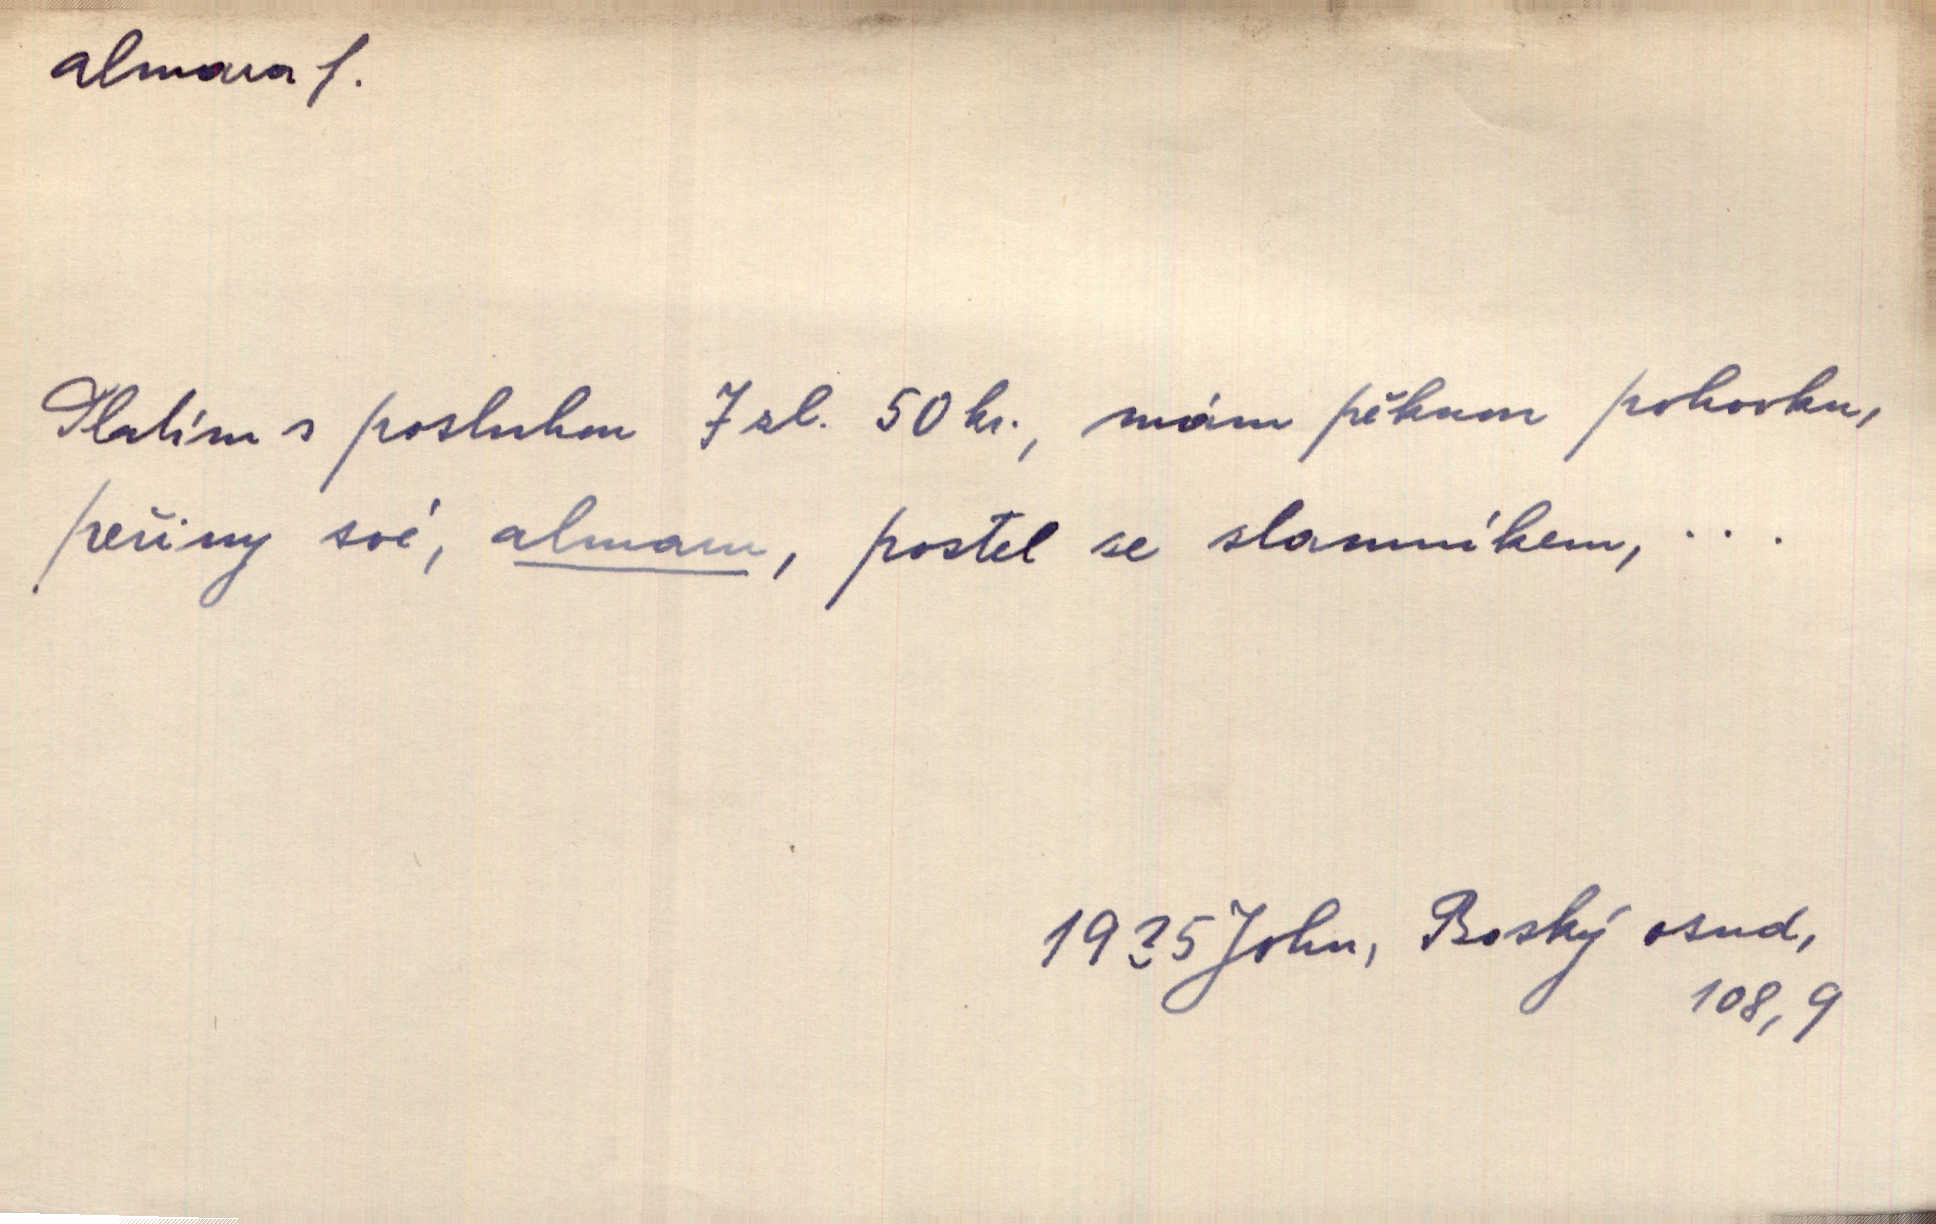 almara f.
Platím s posluhou 7 zl. 50 kr., mám pěknou pohovku,
peřiny své, almaru, postel se slamníkem, . . .
1925 John, Boský osud,
108, 9